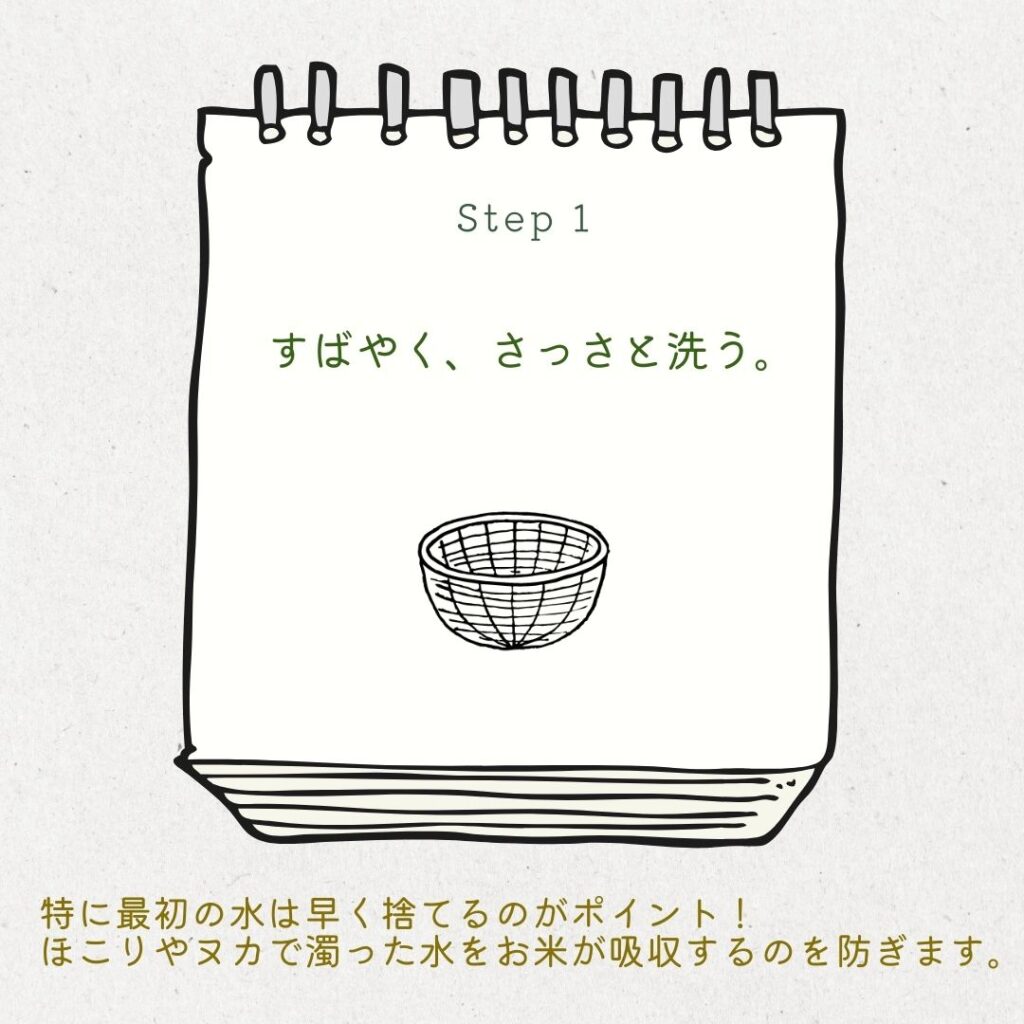 Step 1
すばやく、さっさと洗う。
特に最初の水は早く捨てるのがポイント！
ほこりやヌカで濁った水をお米が吸収するのを防ぎます。